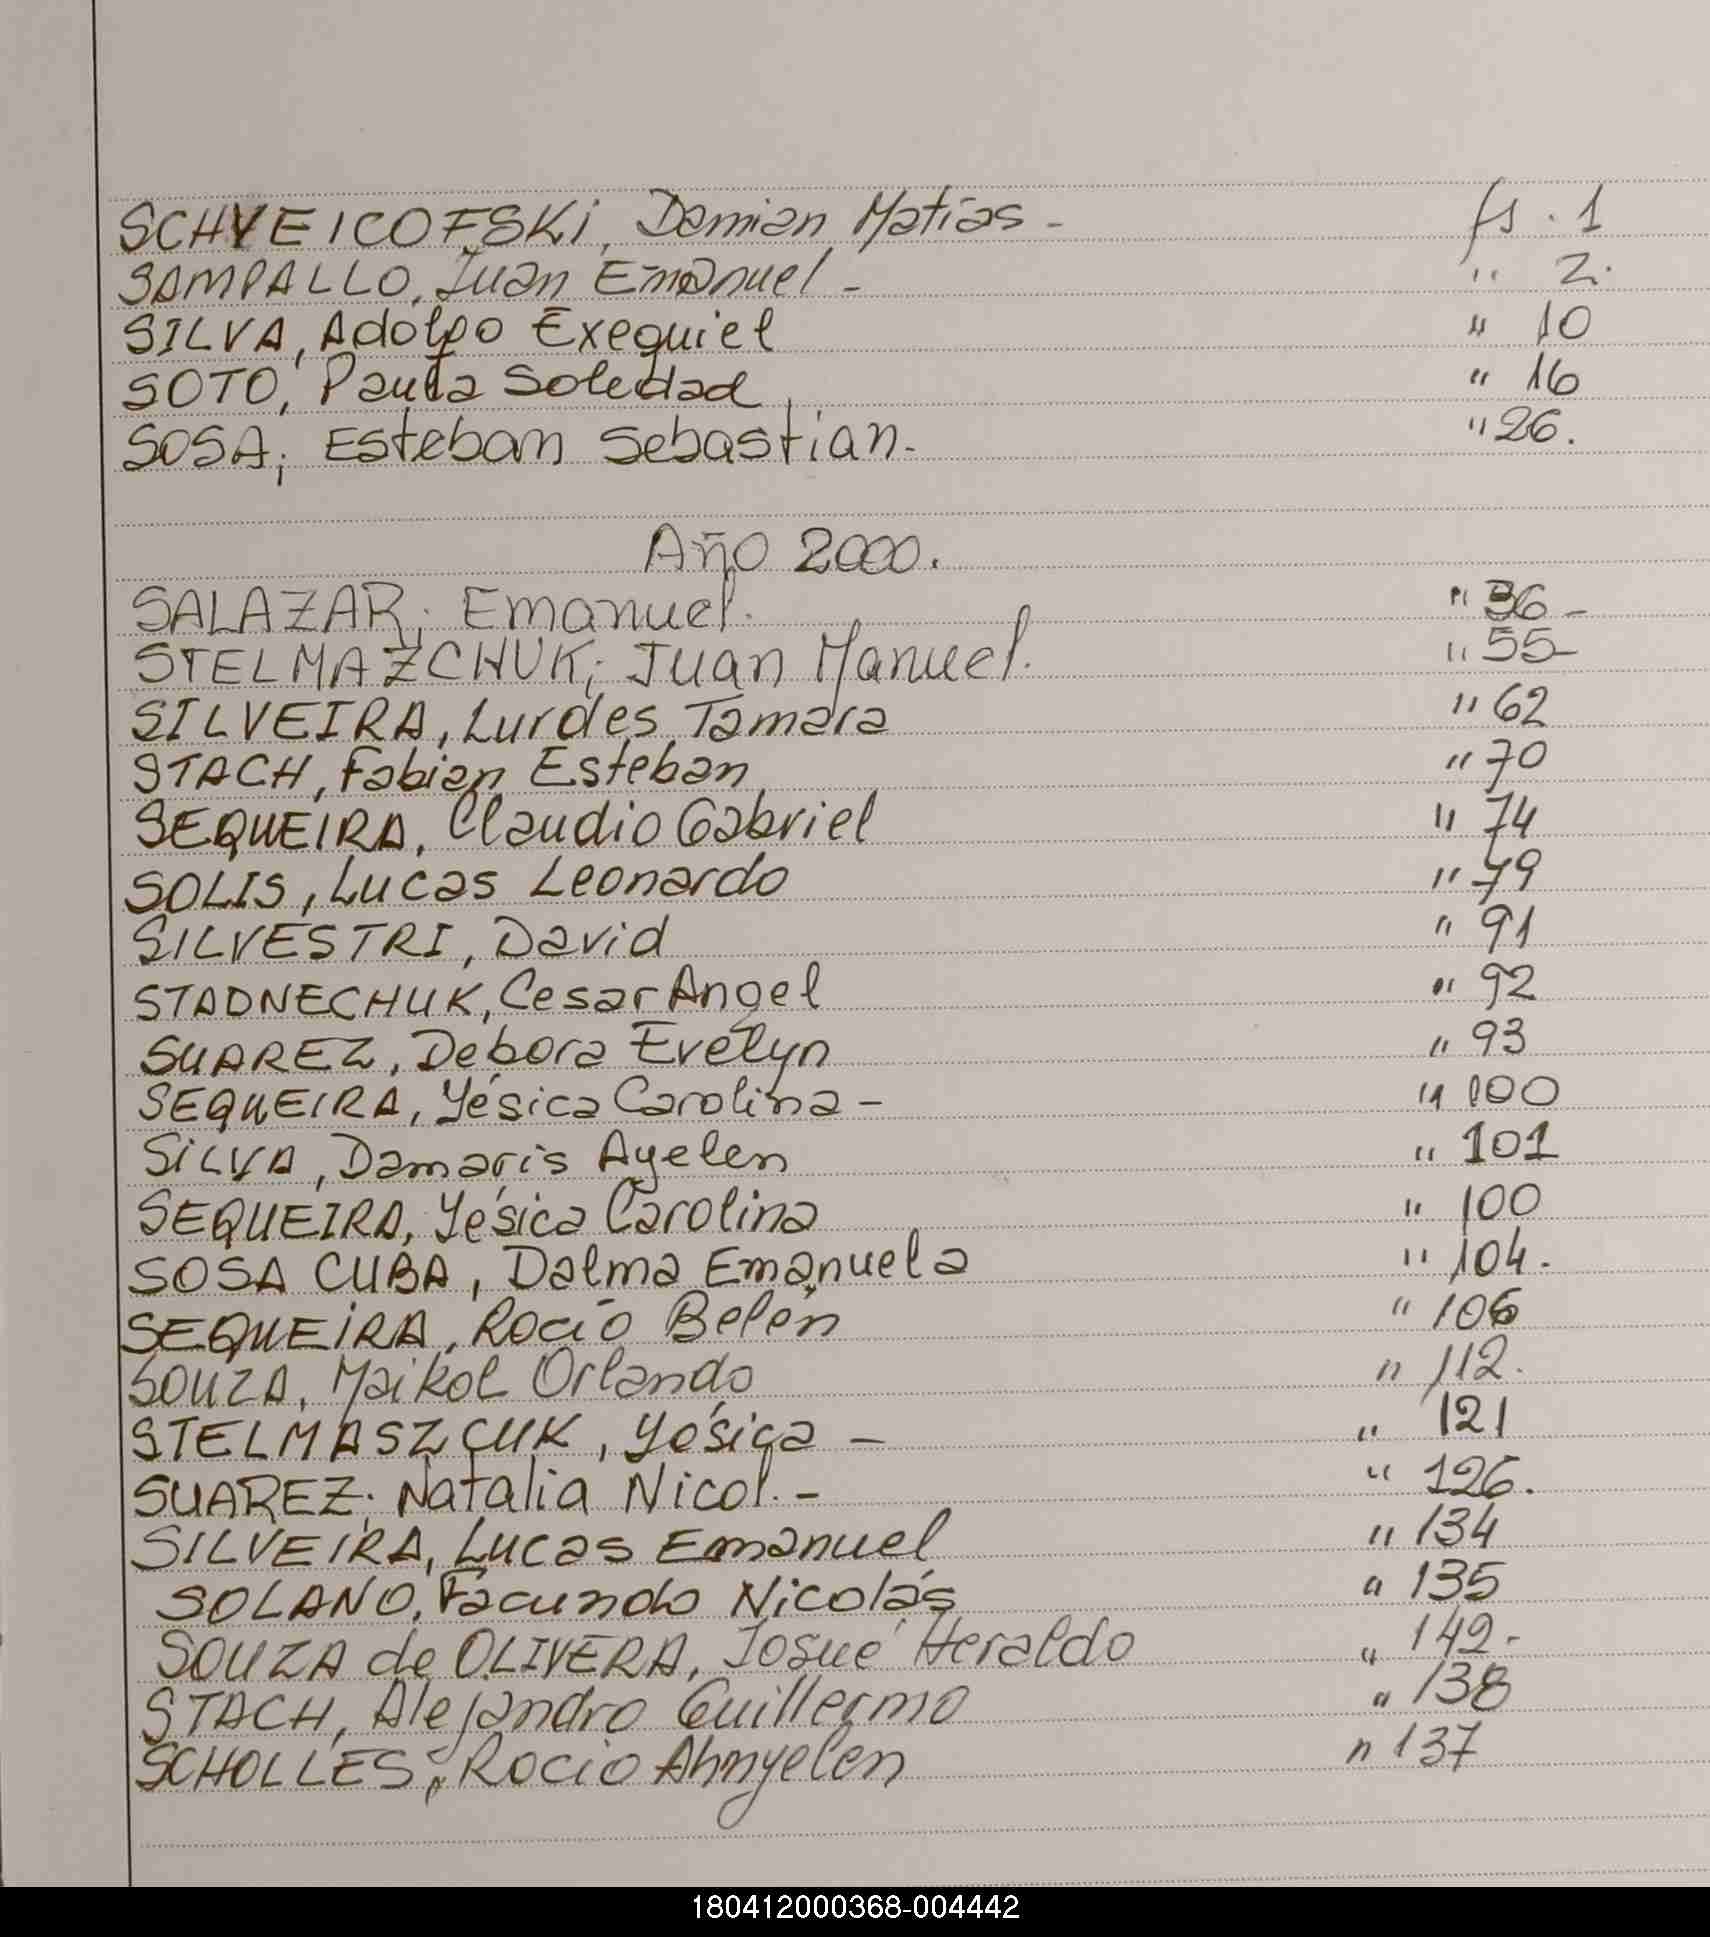 SCHVEICOFSKi, Damian Matías - fs. 1
SAMPALLO, Juan Emanuel - " 2.
SILVA, Adolfo Exequiel " 10
SOTO, Paula Soledad " 16
SOSA; Esteban Sebastian. " 26.
Año 2000.
SALAZAR; Emanuel. " 36 -
STELMAZCHUK; Juan Manuel. " 55 -
SILVEIRA, Lurdes Tamara " 62
STACH, Fabian Esteban " 70
SEQUEIRA, Claudio Gabriel " 74
SOLIS, Lucas Leonardo " 79
SILVESTRI, David " 91
STADNECHUK, Cesar Angel " 92
SUAREZ, Débora Evelyn " 93
SEQUEIRA, Yésica Carolina - " 100
SiLVA, Damaris Ayelen " 101
SEQUEIRA, Yésica Carolina " 100
SOSA CUBA, Dalma Emanuela " 104.
SEQUEiRA, Rocío Belén " 106
SOUZA, Maikol Orlando " 112.
STELMASZCUK, Yésica - " 121
SUAREZ; Natalia Nicol. - " 126.
SILVEIRA, Lucas Emanuel " 134
SOLANO, Facundo Nicolás " 135
SOUZA de OLIVERA, Josué Heraldo " 142 -
STACH, Alejandro Guillermo " 138
SCHOLLES; Rocio Ahnyelen " 137
180412000368-004442